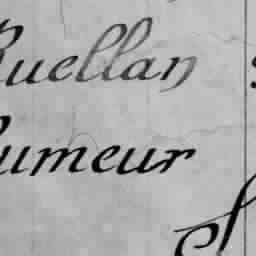 Ruellan
umeur